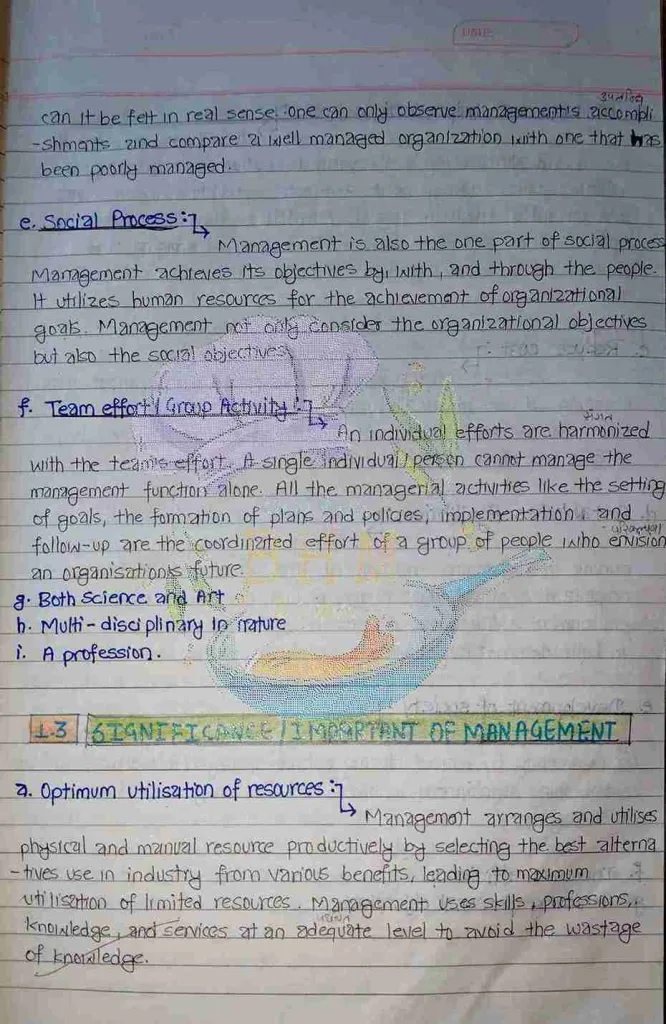 उपलब्धि
can it be felt in real sense. one can only observe management's accompli
-shments and compare a well managed organization with one that has
been poorly managed.
e. Social Process:
Management is also the one part of social process
Management achieves its objectives by, with, and through the people.
It utilizes human resources for the achievement of organizational
goals. Management not only consider the organizational objectives
but also the social objectives
f. Team effort / Group Activity:
An individual efforts are harmonized
with the team's effort. A single individual / person cannot manage the
management function alone. All the managerial activities like the setting
of goals, the formation of plans and policies, implementation, and
follow-up are the coordinated effort of a group of people who envision
an organisation's future.
g. Both Science and Art
h. Multi-disciplinary in nature
i. A profession.
1.3 SIGNIFICANCE / IMPORTANT OF MANAGEMENT
a. Optimum utilisation of resources:
Management arranges and utilises
physical and manual resource productively by selecting the best alterna
-tives use in industry from various benefits, leading to maximum
utilisation of limited resources. Management uses skills, professions,
knowledge, and services at an adequate level to avoid the wastage
of knowledge.